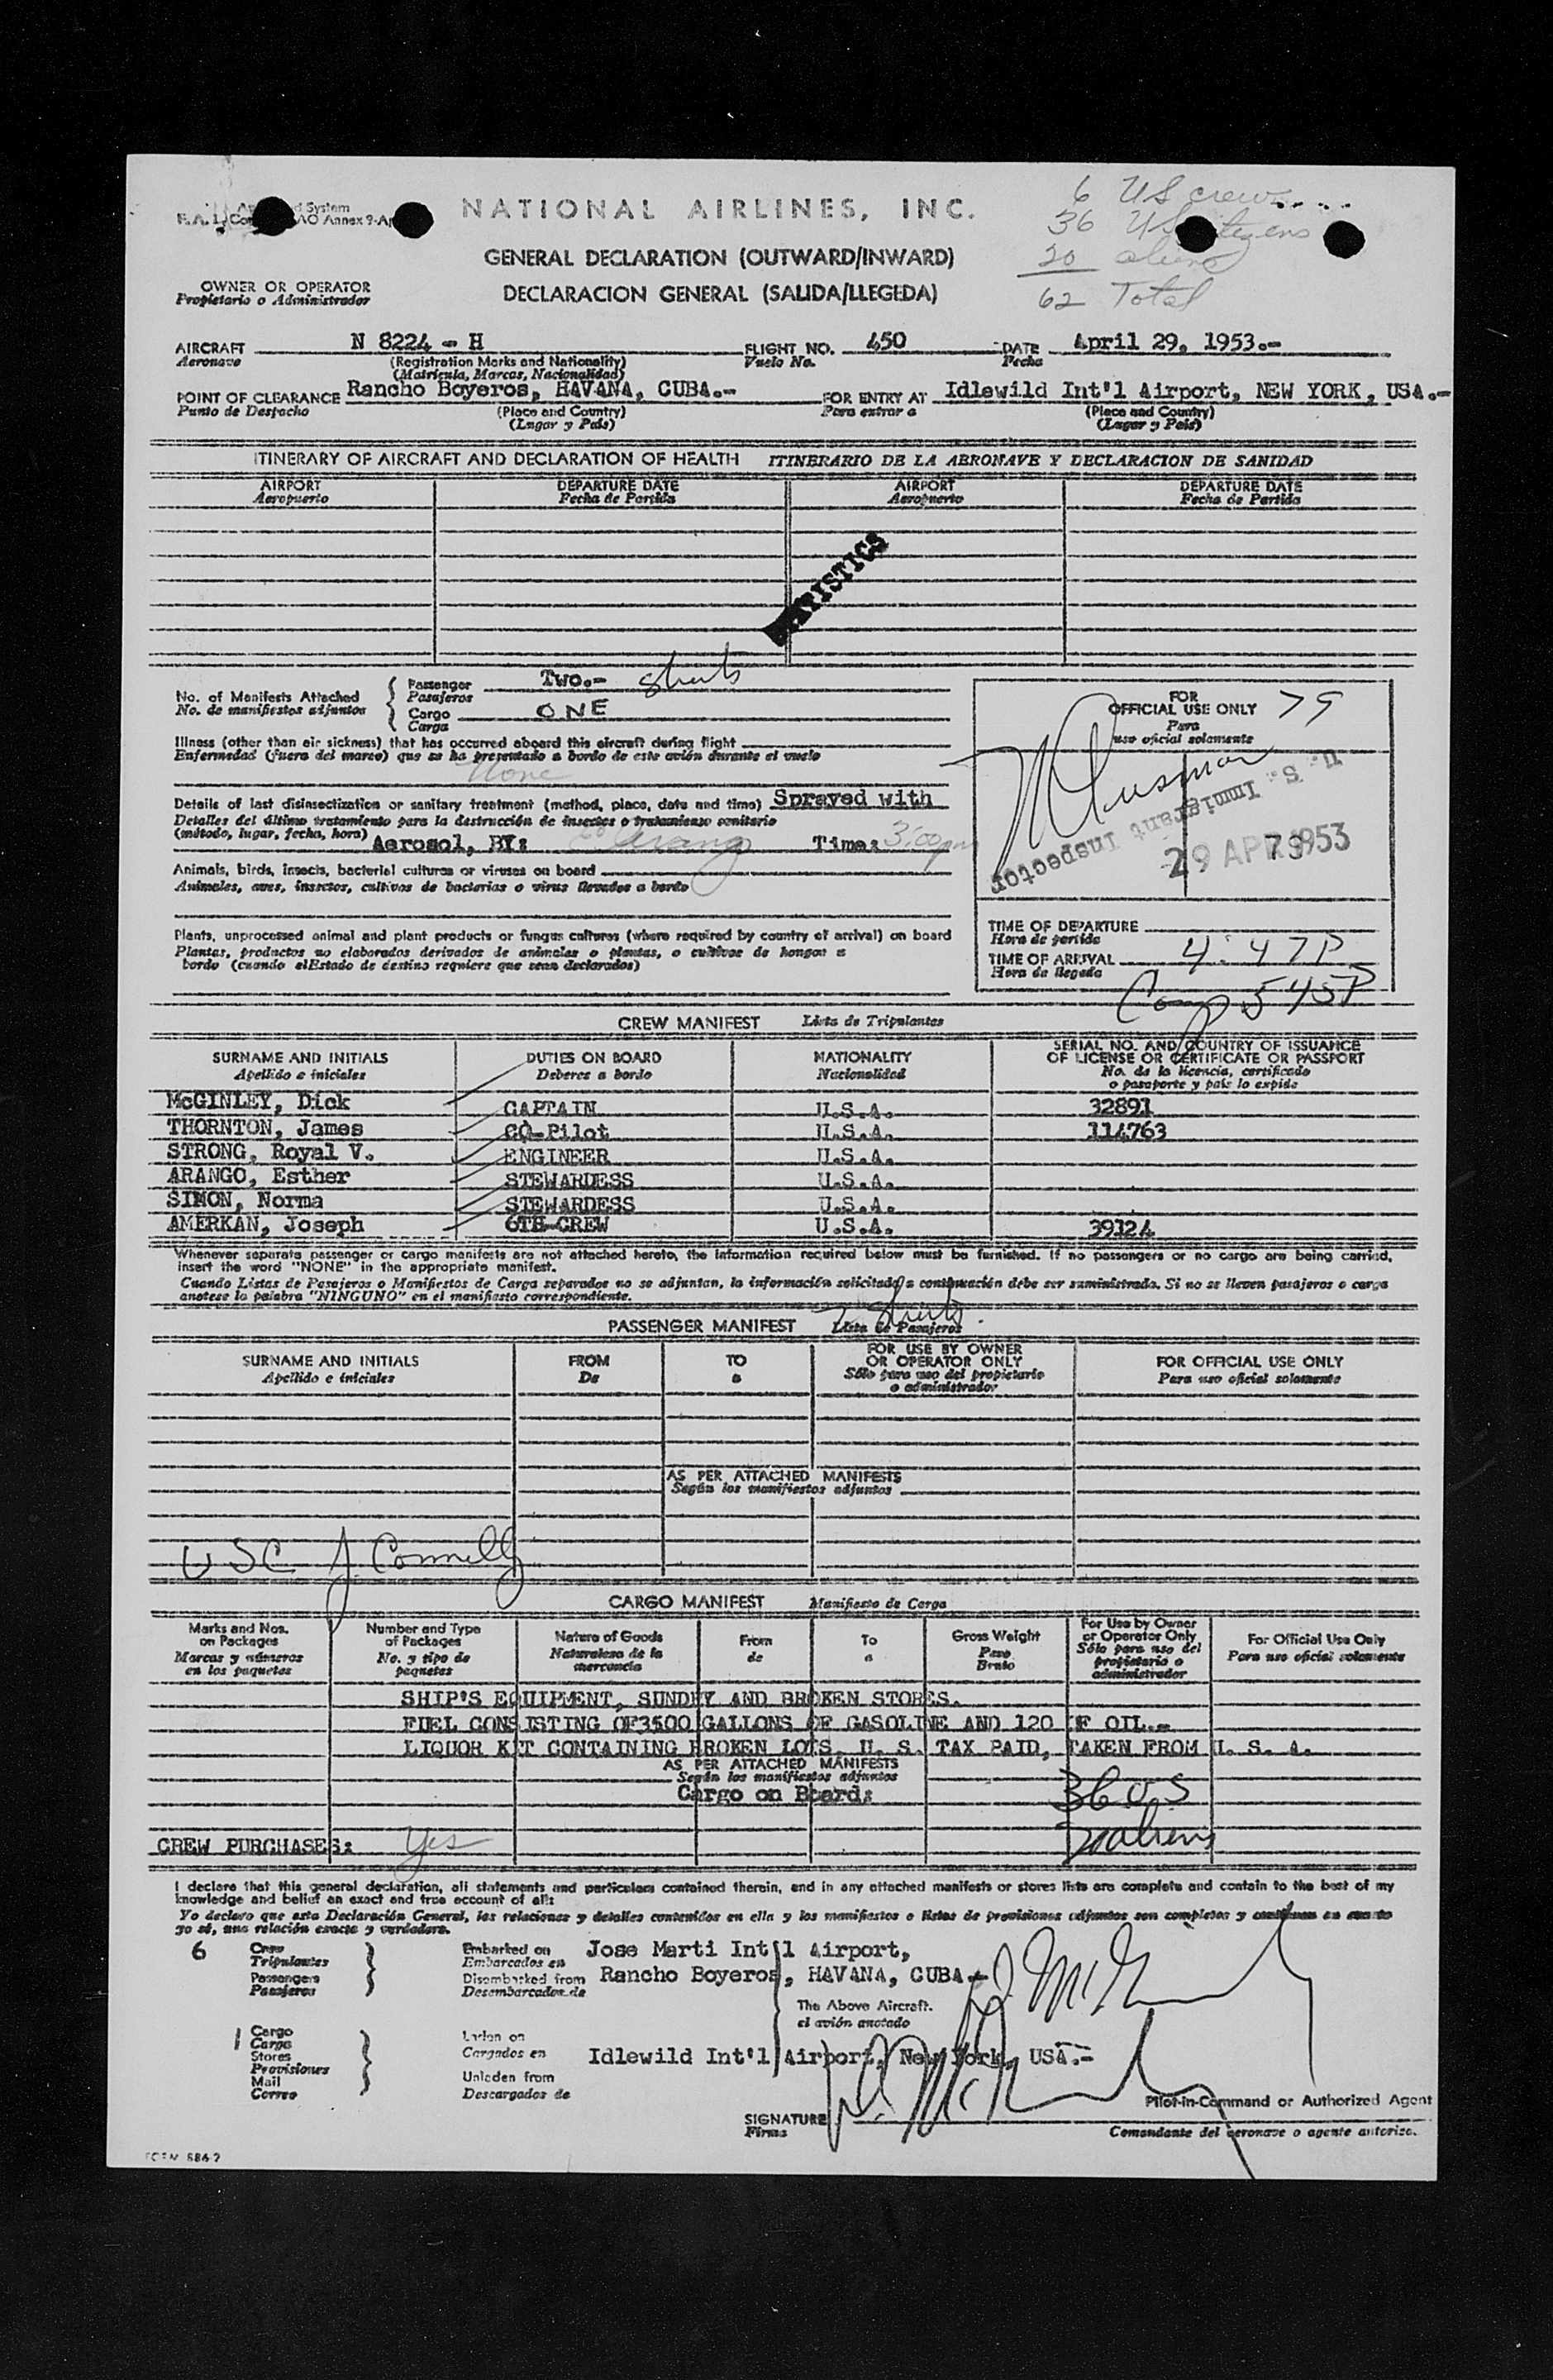 NATIONAL AIRLINES, INC.
6 US crew
36 US
20 aliens
62 Total
GENERAL DECLARATION (OUTWARD/INWARD)
OWNER OR OPERATOR
Propietario o Administrador
DECLARACION GENERAL (SALIDA/LLEGEDA)
AIRCRAFT N 8224 - H FLIGHT NO. 450 DATE April 29, 1953.-
Aeronave (Registration Marks and Nationality) Vuelo No. Fecha
(Matricula, Marcas, Nacionalidad)
POINT OF CLEARANCE Rancho Boyeros, HAVANA, CUBA.- FOR ENTRY AT Idlewild Int'l Airport, NEW YORK, USA.-
Punto de Despacho (Place and Country) Para entrar a (Place and Country)
(Lugar y País) (Lugar y País)
ITINERARY OF AIRCRAFT AND DECLARATION OF HEALTH ITINERARIO DE LA AERONAVE Y DECLARACION DE SANIDAD
AIRPORT DEPARTURE DATE AIRPORT DEPARTURE DATE
Aeropuerto Fecha de Partida Aeropuerto Fecha de Partida
No. of Manifests Attached Passenger Two.- sheets
No. de manifiestos adjuntos Pasajeros
Cargo ONE
Carga
Illness (other than air sickness) that has occurred aboard this aircraft during flight
Enfermedad (fuera del mareo) que se ha presentado a bordo de este avión durante el vuelo
None
Details of last disinsectization or sanitary treatment (method, place, date and time) Sprayed with
Detalles del último tratamiento para la destrucción de insectos o tratamiento sanitario
(método, lugar, fecha, hora) Aerosol, BY: E Arango Time: 3:00 pm
Animals, birds, insects, bacterial cultures or viruses on board
Animales, aves, insectos, cultivos de bacterias o virus llevados a bordo
Plants, unprocessed animal and plant products or fungus cultures (where required by country of arrival) on board
Plantas, productos no elaborados derivados de animales o plantas, o cultivos de hongos a
bordo (cuando elEstado de destino requiere que sean declarados)
FOR
OFFICIAL USE ONLY 79
Para
uso oficial solamente
U. S. Immigrant Inspector
79
29 APR 1953
TIME OF DEPARTURE
Hora de partida
TIME OF ARRIVAL 4:47P
Hora de llegada
Comp 545P
CREW MANIFEST Lista de Tripulantes
SURNAME AND INITIALS DUTIES ON BOARD NATIONALITY SERIAL NO. AND COUNTRY OF ISSUANCE
Apellido e iniciales Deberes a bordo Nacionalidad OF LICENSE OR CERTIFICATE OR PASSPORT
No. de la licencia, certificado
o pasaporte y país lo expide
McGINLEY, Dick CAPTAIN U.S.A. 32891
THORNTON, James CO-Pilot U.S.A. 114763
STRONG, Royal V. ENGINEER U.S.A.
ARANGO, Esther STEWARDESS U.S.A.
SIMON, Norma STEWARDESS U.S.A.
AMERKAN, Joseph 6TH-CREW U.S.A. 39124
Whenever separate passenger or cargo manifests are not attached hereto, the information required below must be furnished. If no passengers or no cargo are being carried,
insert the word "NONE" in the appropriate manifest.
Cuando Listas de Pasajeros o Manifiestos de Carga separados no se adjuntan, la información solicitada a continuación debe ser suministrada. Si no se llevan pasajeros o carga
anotese la palabra "NINGUNO" en el manifiesto correspondiente.
2 Sheets.
PASSENGER MANIFEST Lista de Pasajeros
SURNAME AND INITIALS FROM TO FOR USE BY OWNER OR OPERATOR ONLY FOR OFFICIAL USE ONLY
Apellido e iniciales De a Sólo para uso del propietario o administrador Para uso oficial solamente
AS PER ATTACHED MANIFESTS
Según los manifiestos adjuntos
USC J. Connelly
CARGO MANIFEST Manifiesto de Carga
Marks and Nos. on Packages Number and Type of Packages Nature of Goods From To Gross Weight For Use by Owner or Operator Only For Official Use Only
Marcas y números en los paquetes No. y tipo de paquetes Naturaleza de la mercancia de a Peso Bruto Sólo para uso del propietario o administrador Para uso oficial solamente
SHIP'S EQUIPMENT, SUNDRY AND BROKEN STORES.
FUEL CONSISTING OF3500 GALLONS OF GASOLINE AND 120 OF OIL.-
LIQUOR KIT CONTAINING BROKEN LOTS, U. S. TAX PAID, TAKEN FROM U. S. A.
AS PER ATTACHED MANIFESTS
Según los manifiestos adjuntos
Cargo on Board: 36 US
20 aliens
CREW PURCHASES: Yes
I declare that this general declaration, all statements and particulars contained therein, and in any attached manifests or stores lists are complete and contain to the best of my
knowledge and belief an exact and true account of all:
Yo declaro que esta Declaración General, las relaciones y detalles contenidos en ella y los manifiestos o listas de provisiones adjuntos son completos y contienen en cuanto
yo sé, una relación exacta y verdadera.
6 Crew Embarked on Jose Marti Int'l Airport,
Tripulantes Embarcados en
Passengers Disembarked from Rancho Boyeros, HAVANA, CUBA.-
Pasajeros Desembarcados de
The Above Aircraft.
el avión anotado
1 Cargo Laden on
Carga
Stores Cargados en Idlewild Int'l Airport, New York, USA.-
Provisiones
Mail Unladen from
Correo Descargados de
Pilot-in-Command or Authorized Agent
SIGNATURE
Firma Comandante del aeronave o agente autorizo.
FORM 886-2